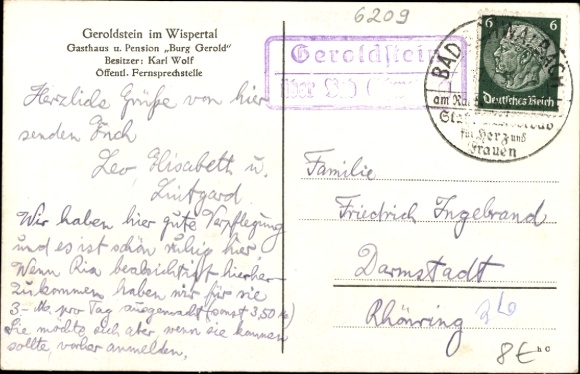 6209
Geroldstein im Wispertal
Gasthaus u. Pension „Burg Gerold"
Besitzer: Karl Wolf
Öffentl. Fernsprechstelle
Geroldstein
über
BAD
6 6
Deutsches Reich
am
für Herz und
Frauen
Herzliche Grüße von hier
senden Euch
Leo, Elisabeth u.
Luitgard.
Wir haben hier gute Verpflegung
und es ist schön ruhig hier.
Wenn Ria beabsichtigt hierher-
zukommen haben wir für sie
3- M. pro Tag ausgemacht (sonst 3,50 M)
Sie möchte sich aber wenn sie kommen
sollte, vorher anmelden,
Familie
Friedrich Ingebrand
Darmstadt
Rhönring 26
8€
h C